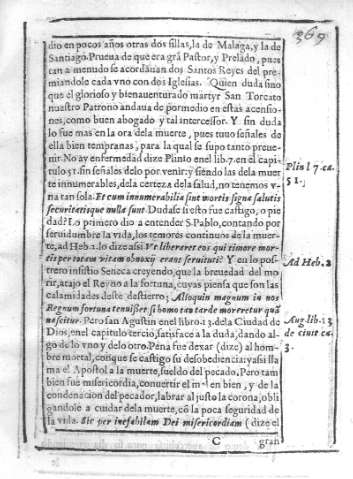 369
dio en pocos años otras dos sillas, la de Malaga, y la de
Santiago. Prueua de que era grã Pastor, y Prelado, pues
tan a menudo se acordauan dos Santos Reyes del pre-
miandole cada vno con dos Iglesias. Quien duda sino
que el glorioso y bienauenturado martyr San Torcato
nuestro Patrono andaua de por medio en estas acensio-
nes, como buen abogado y tal intercessor. Y sin duda
lo fue mas en la ora dela muerte, pues tuuo señales de
ella bien tempranas, para la qual se supo tanto preue-
nir. No ay enfermedad dize Plinio enel lib. 7. en el capi-
tulo 51. sin señales delo por venir: y siendo las dela muer
te innumerables, dela certeza dela salud, no tenemos v-
na tan sola. Et cum innumerabilia sint mortis signa salutis
securitatisque nulla sunt. Dudase si esto fue castigo, o pie
dad? Lo primero dio a entender S. Pablo, contando por
seruidumbre la vida, los temores continuos de la muer-
te, ad Heb. 2. lo dize assi Vt liberaret eos qui timore mor-
tis per totam vitam obnoxij erant seruituti? Y en lo pos-
trero insistio Seneca creyendo, que la breuedad del mo
rir, atajo el Reyno a la fortuna, cuyas piensa que son las
calamidades deste destierro; Alioquin magnum in nos
Regnum fortuna tenuisset si homo tam tarde moreretur quã
nascitur. Pero san Agustin enel libro 13. dela Ciudad de
Dios, enel capitulo tercio, satisface a la duda, dando al-
go de lo vno y delo otro. Pena fue dexar (dize) al hom-
bre mortal, conque se castigo su desobediencia: y assi lla
ma el Apostol a la muerte, sueldo del pecado, Pero tam
bien fue misericordia, conuertir el mal en bien, y de la
condenacion del pecador, labrar al justo la corona, obli
gandole a cuidar dela muerte, cõ la poca seguridad de
la vida. Sic per inefabilem Dei misericordiam (dize el
C
gran
Plin l 7. ca.
51.
Ad Heb. 2
Aug lib. 13
de ciuit ca.
3.